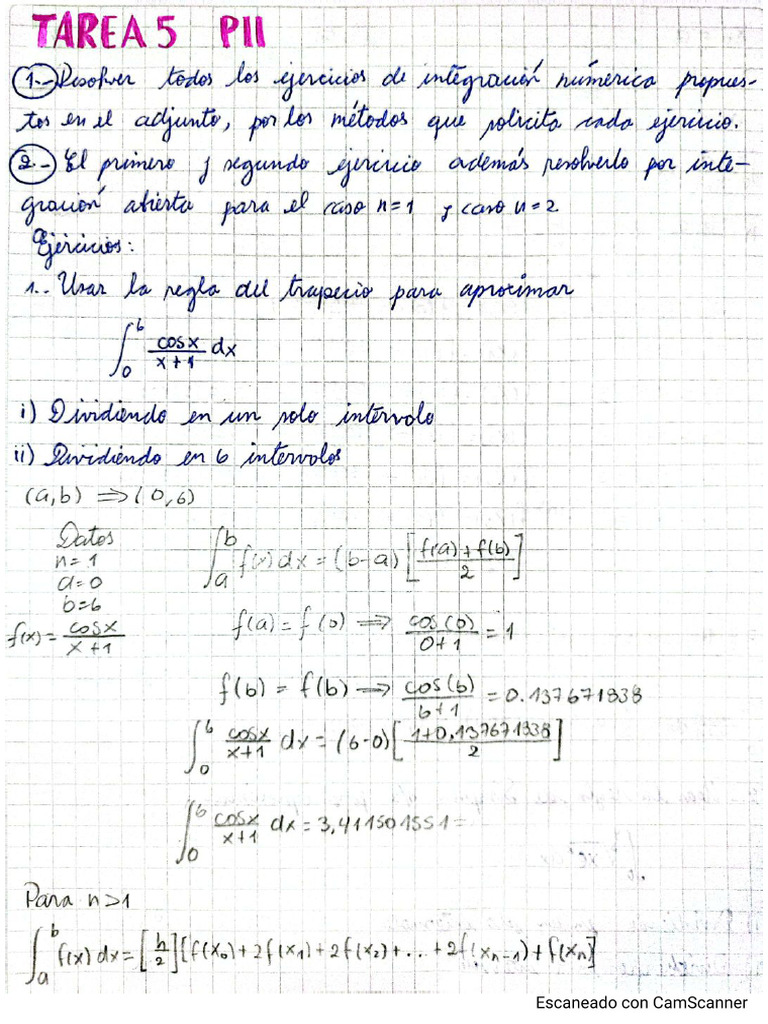 TAREA 5 PII
1.- Resolver todos los ejercicios de integración numérica propues-
tos en el adjunto, por los métodos que solicita cada ejercicio.
2.- El primero y segundo ejercicio además resolverlo por inte-
gración abierta para el caso n=1 y caso n=2
Ejercicios:
1.. Usar la regla del trapecio para aproximar
∫₀⁶ cosx/(x+1) dx
i) Dividiendo en un solo intervalo
ii) Dividiendo en 6 intervalos
(a,b) ⟹ (0,6)
Datos
n=1
a=0
b=6
f(x)= cosx/(x+1)
∫ₐᵇ f(x) dx = (b-a) [(f(a)+f(b))/2]
f(a) = f(0) ⟹ cos(0)/(0+1) = 1
f(b) = f(6) ⟹ cos(6)/(6+1) = 0.137671838
∫₀⁶ cosx/(x+1) dx = (6-0) [(1+0,137671838)/2]
∫₀⁶ cosx/(x+1) dx = 3,411501551=
Para n>1
∫ₐᵇ f(x) dx = [h/2][f(x₀)+2f(x₁)+2f(x₂)+...+2f(xₙ₋₁)+f(xₙ)]
Escaneado con CamScanner